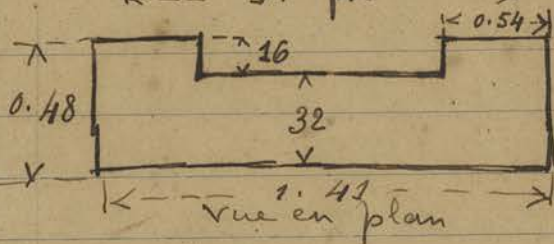 0.54
16
0.48
32
1.41
vue en plan